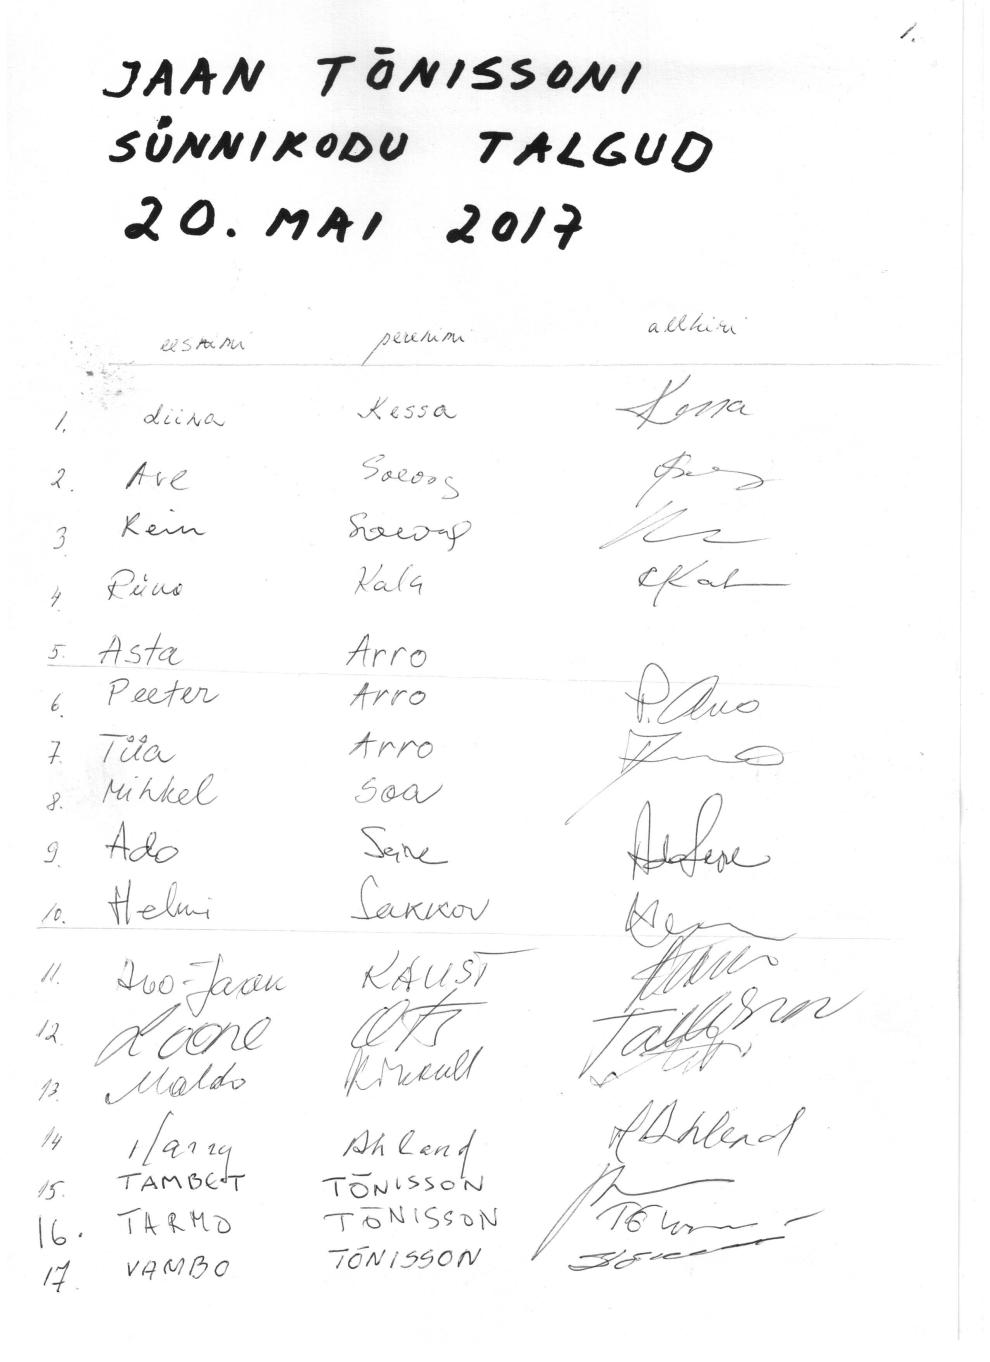 1.
JAAN TÕNISSONI
SÜNNIKODU TALGUD
20. MAI 2017
eesnimi perenimi allkiri
1. Liina Kessa Kessa
2. Ave Soovog
3. Rein Soovog
4. Riino Kala RKala
5. Asta Arro
6. Peeter Arro P. Arro
7. Tiia Arro
8. Mihkel Soa
9. Ado Seire Ado Seire
10. Helmi Sakkov
11. Ivo-Jaan KAUST
12. Loone Ots
13. Maldo
14 Harry Ahland H Ahland
15. TAMBET TÕNISSON
16. TARMO TÕNISSON
17. VAMBO TÕNISSON